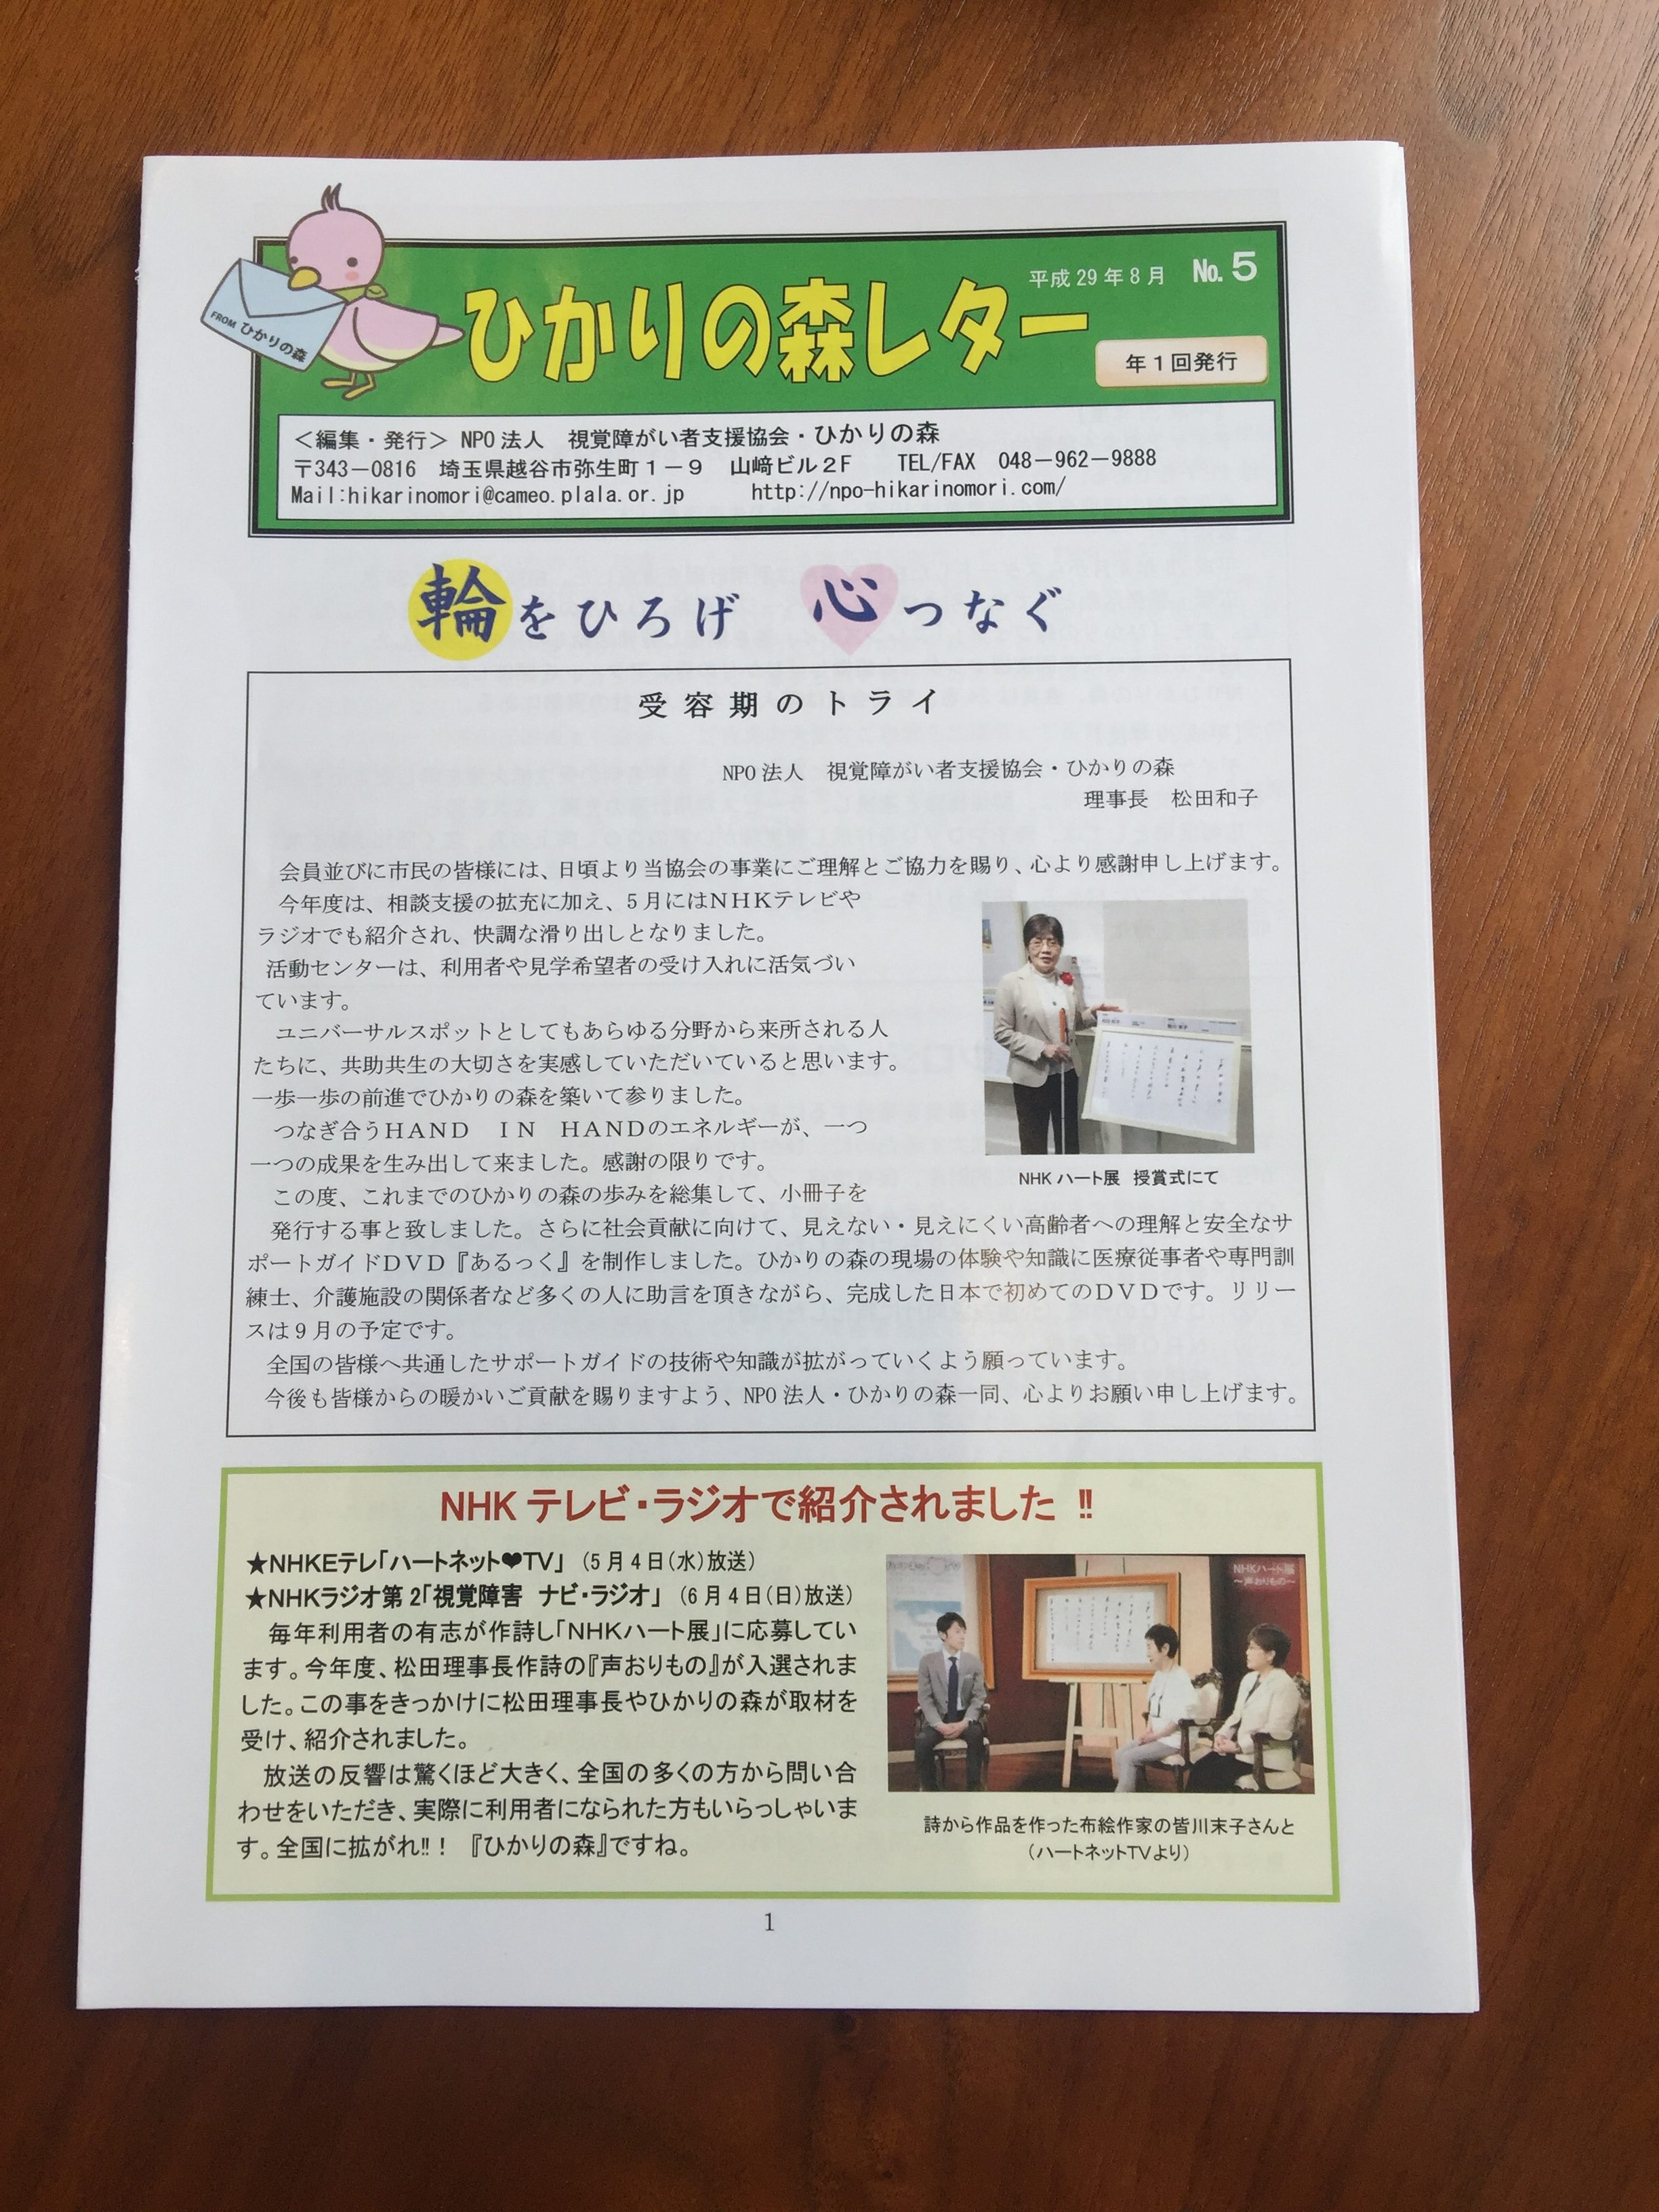 平成29年8月 No.5
ひかりの森レター
FROM ひかりの森
年1回発行
＜編集・発行＞ NPO法人 視覚障がい者支援協会・ひかりの森
〒343－0816 埼玉県越谷市弥生町1－9 山﨑ビル2F TEL/FAX 048－962－9888
Mail:hikarinomori@cameo.plala.or.jp http://npo-hikarinomori.com/
輪をひろげ 心つなぐ
受容期のトライ
NPO法人 視覚障がい者支援協会・ひかりの森
理事長 松田和子
会員並びに市民の皆様には、日頃より当協会の事業にご理解とご協力を賜り、心より感謝申し上げます。
今年度は、相談支援の拡充に加え、5月にはNHKテレビや
ラジオでも紹介され、快調な滑り出しとなりました。
活動センターは、利用者や見学希望者の受け入れに活気づい
ています。
ユニバーサルスポットとしてもあらゆる分野から来所される人
たちに、共助共生の大切さを実感していただいていると思います。
一歩一歩の前進でひかりの森を築いて参りました。
つなぎ合うHAND IN HANDのエネルギーが、一つ
一つの成果を生み出して来ました。感謝の限りです。
この度、これまでのひかりの森の歩みを総集して、小冊子を
発行する事と致しました。さらに社会貢献に向けて、見えない・見えにくい高齢者への理解と安全なサ
ポートガイドDVD『あるっく』を制作しました。ひかりの森の現場の体験や知識に医療従事者や専門訓
練士、介護施設の関係者など多くの人に助言を頂きながら、完成した日本で初めてのDVDです。リリー
スは9月の予定です。
全国の皆様へ共通したサポートガイドの技術や知識が拡がっていくよう願っています。
今後も皆様からの暖かいご貢献を賜りますよう、NPO法人・ひかりの森一同、心よりお願い申し上げます。
NHKハート展 授賞式にて
NHKテレビ・ラジオで紹介されました!!
★NHKEテレ「ハートネット♥TV」（5月4日（水）放送）
★NHKラジオ第2「視覚障害 ナビ・ラジオ」（6月4日（日）放送）
毎年利用者の有志が作詩し「NHKハート展」に応募してい
ます。今年度、松田理事長作詩の『声おりもの』が入選されま
した。この事をきっかけに松田理事長やひかりの森が取材を
受け、紹介されました。
放送の反響は驚くほど大きく、全国の多くの方から問い合
わせをいただき、実際に利用者になられた方もいらっしゃいま
す。全国に拡がれ!!！ 『ひかりの森』ですね。
NHKハート展
～声おりもの～
詩から作品を作った布絵作家の皆川末子さんと
（ハートネットTVより）
1